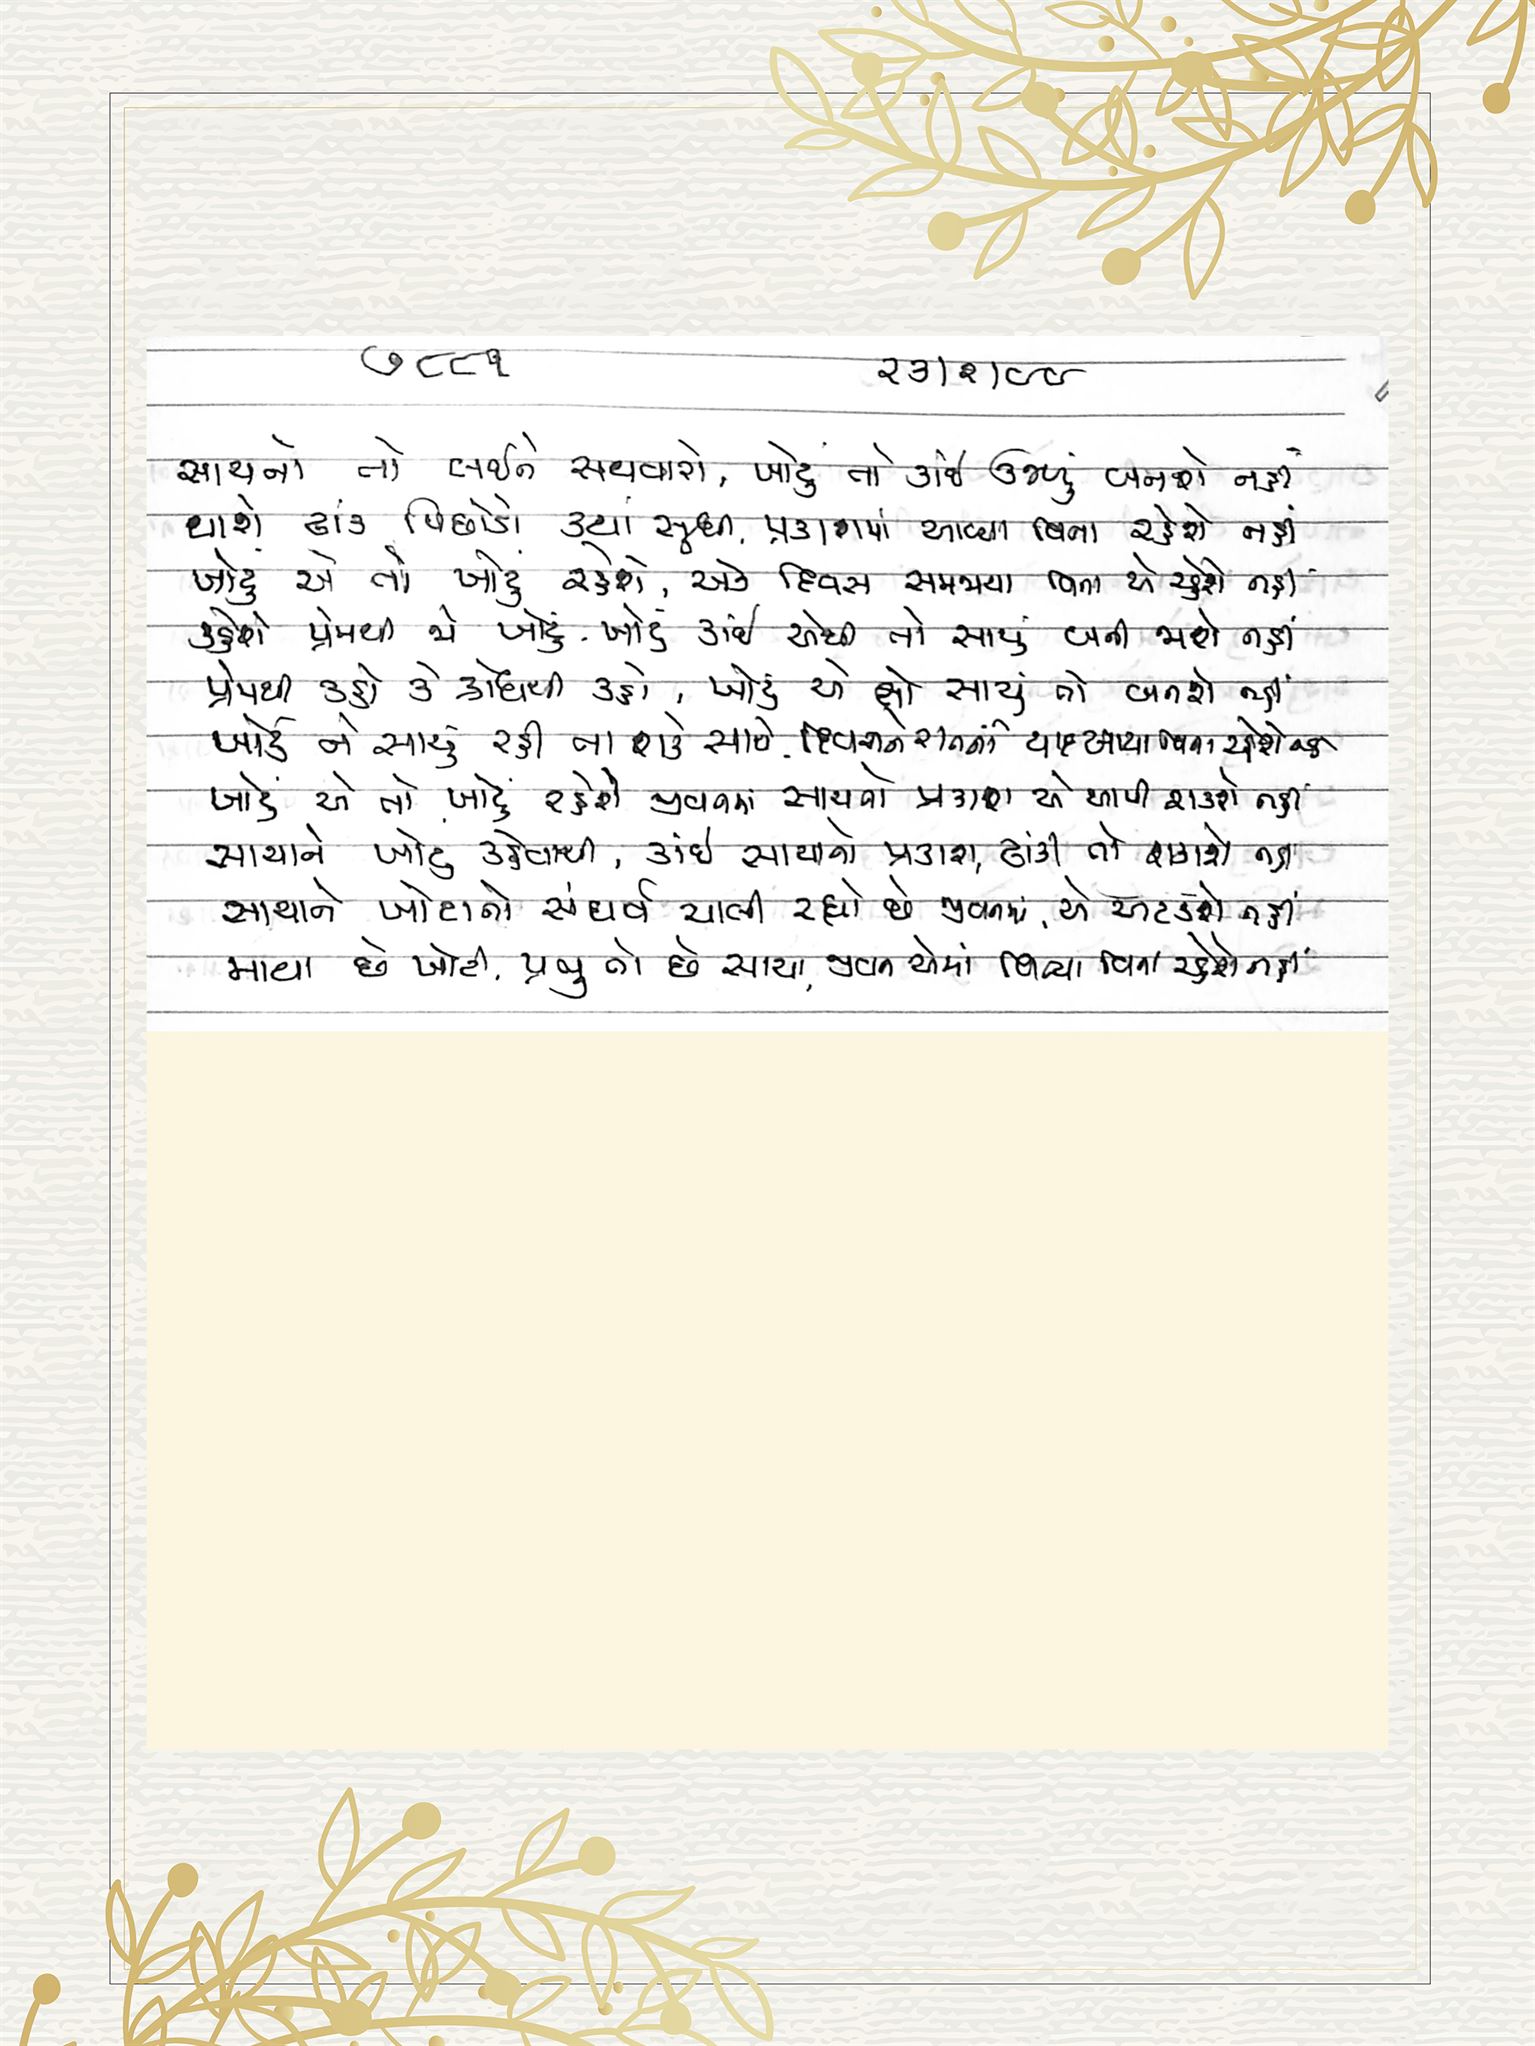 ૭૮૮૧ ૨૩/૧/૯૯
સાચનો તો લઈને સથવારો, ખોટું તો કાંઈ ઉજળું બનશે નહીં
થાશે ઢાંક પિછોડો ક્યાં સુધી, પ્રકાશમાં આવ્યા વિના રહેશે નહીં
ખોટું એ તો ખોટું રહેશે, એક દિવસ સમજાયા વિના એ રહેશે નહીં
કહેશો પ્રેમથી જો ખોટું, ખોટું કાંઈ એથી તો સાચું બની જાશે નહીં
પ્રેમથી કહો કે ક્રોધથી કહો, ખોટું એ તો સાચું તો બનશે નહીં
ખોટું ને સાચું રહી ના શકે સાથે, દિવસને રાતની યાદ આપ્યા વિના રહેશે નહીં
ખોટું એ તો ખોટું રહેશે જીવનમાં સાચનો પ્રકાશ એ આપી શકશે નહીં
સાચાને ખોટું કહેવાથી, કાંઈ સાચાનો પ્રકાશ, ઢાંકી તો શકાશે નહીં
સાચાને ખોટાનો સંઘર્ષ ચાલી રહ્યો છે જીવનમાં, એ અટકશે નહીં
માયા છે ખોટી, પ્રભુ તો છે સાચા, જીવન એમાં વિત્યા વિના રહેશે નહીં